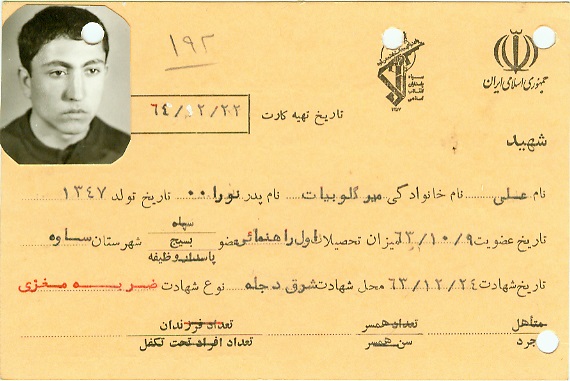 ۱۹۲
جمهوری اسلامی ایران
سپاه پاسداران انقلاب اسلامی
تاریخ تهیه کارت ۶۴/۱۲/۲۲
شهید
نام علی نام خانوادگی میر گلوبیات نام پدر نورا۰۰ تاریخ تولد ۱۳۴۷
تاریخ عضویت ۶۳/۱۰/۹ میزان تحصیلات اول راهنمائی عضو سپاه بسیج پاسدار وظیفه شهرستان ساوه
تاریخ شهادت ۶۳/۱۲/۲۴ محل شهادت شرق دجله نوع شهادت ضربه مغزی
متأهل تعداد همسر تعداد فرزندان
مجرد سن همسر تعداد افراد تحت تکفل